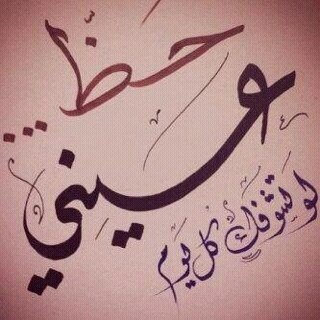 حظ ...
عيني
لو تشوفك كل يوم